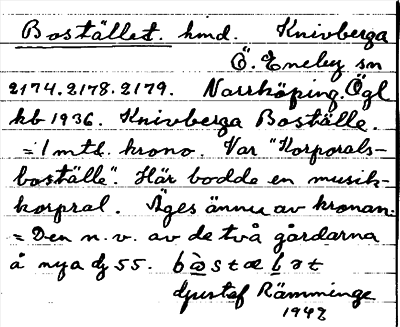 Bostället. hmd. Knivberga
Ö. Eneby sn
2174.2178.2179. Norrköping. Ögl
kb 1936. Knivberga Boställe.
= 1 mtl. krono. Var "Korporals-
boställe". Här bodde en musik-
korpral. Äges ännu av kronan.
= Den n. v. av de två gårdarna
å nya dj 55. bòstælət
Gustaf Rämminge